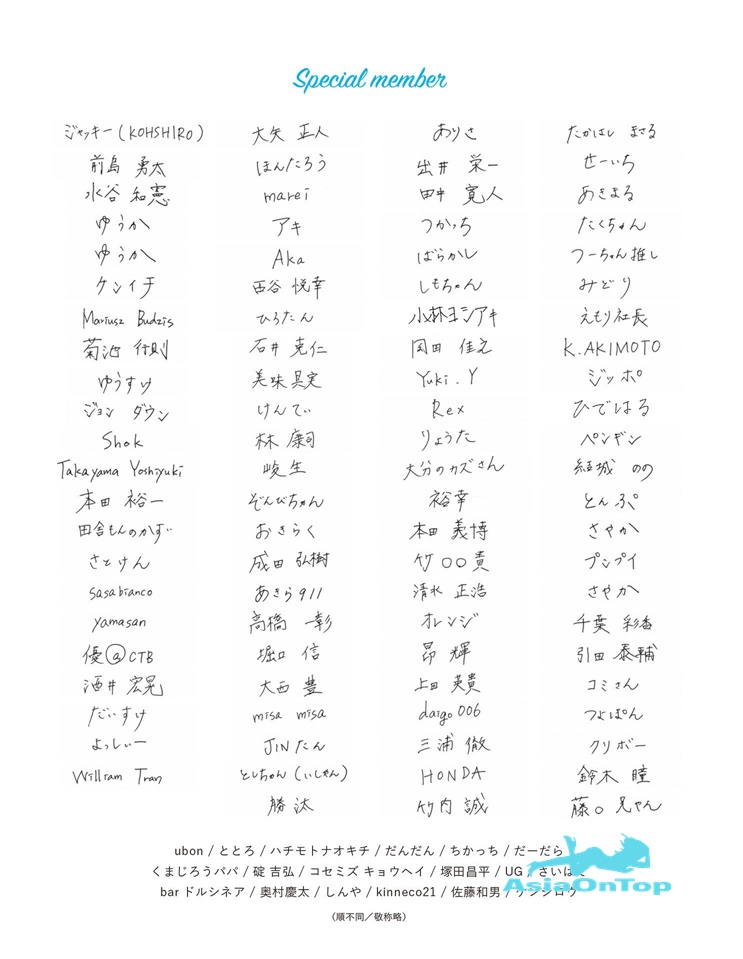 Special member
ジャッキー(KOHSHIRO) 大矢 正人 ありさ たかはし まさる
前島 勇太 ほんだろう 出井 栄一 せーいち
水谷 和憲 marei 田中 寛人 あきまる
ゆうか アキ つかっち たくちゃん
ゆうか Aka ばらかし つーちゃん推し
ケンイチ 西谷 悦幸 しもちゃん みどり
Mariusz Budzis ひろたん 小林ヨシアキ えもり社長
菊池 行則 石井 克仁 岡田 佳之 K.AKIMOTO
ゆうすけ 美味真実 Yuki.Y ジッポ
ジョン ダウン けんてぃ Rex ひではる
Shok 林 康司 りょうた ペンギン
Takayama Yoshiyuki 峻生 大分のカズさん 結城 のの
本田 裕一 ぞんびちゃん 裕幸 とんぷ
田舎もんのかず おきらく 本田 義博 さやか
さとけん 成田 弘樹 竹〇〇貴 プンプイ
sasabianco あきら911 清水 正浩 さやか
yamasan 高橋 一彰 オレンジ 千葉 彩香
優@CTB 堀口 信 昂輝 引田 泰輔
酒井 宏晃 大西 豊 上田 英貴 コミさん
だいすけ misa misa daigo006 つよぽん
よっしぃー JINたん 三浦 徹 クリボー
William Tran としちゃん(いしゃん) HONDA 鈴木 瞳
勝汰 竹内 誠 藤〇 兄ゃん
ubon / ととろ / ハチモトナオキチ / だんだん / ちかっち / だーだら
くまじろうパパ / 碇 吉弘 / コセミズ キョウヘイ / 塚田昌平 / UG / さいば
bar ドルシネア / 奥村慶太 / しんや / kinneco21 / 佐藤和男 / ケンシロウ
(順不同/敬称略)
AsiaOnTop